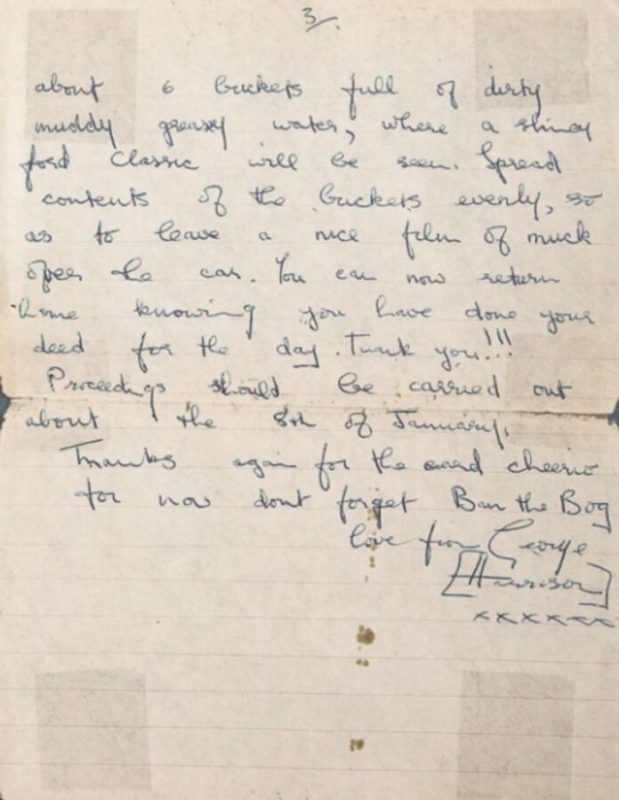 3/.
about 6 buckets full of dirty
muddy greasy water, where a shiney
ford Classic will be seen. Spread
contents of the buckets evenly, so
as to leave a nice film of muck
over the car. You can now return
home knowing you have done your
deed for the day. Thank you!!!
Proceedings should be carried out
about the 8th of January.
Thanks again for the card cheerio
for now dont forget Ban the Bog
love from George
[Harrison]
xxxxxx